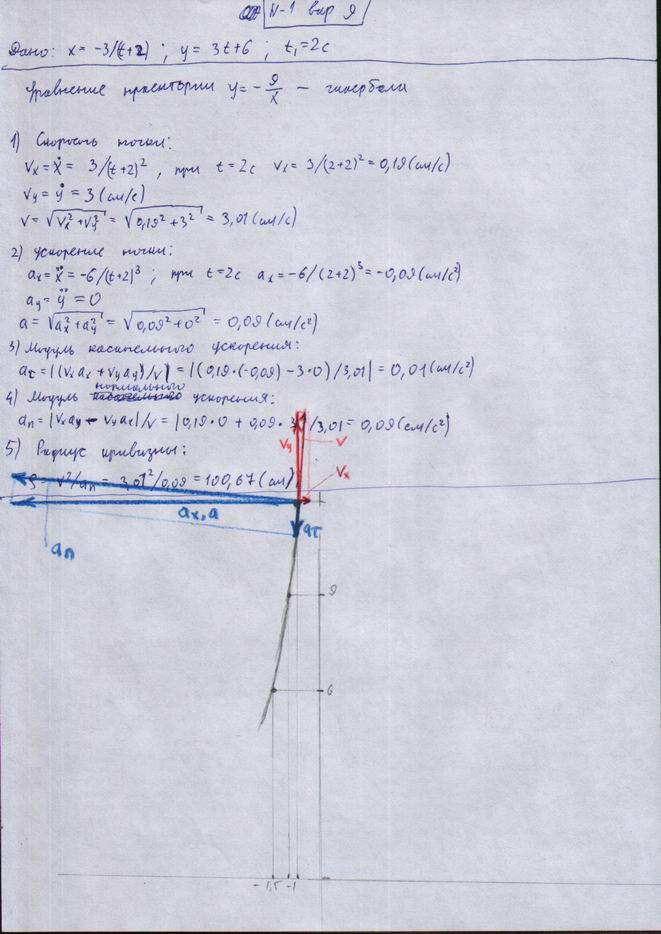 N-1 вар 9
Дано: x = -3/(t+2) ; y = 3t+6 ; t₁=2с
Уравнение траектории y = -9/x — гипербола
1) Скорость точки:
Vx = ẋ = 3/(t+2)², при t=2с Vx = 3/(2+2)² = 0,19 (см/с)
Vy = ẏ = 3 (см/с)
V = √(Vx²+Vy²) = √(0,19²+3²) = 3,01 (см/с)
2) Ускорение точки:
ax = ẍ = -6/(t+2)³ ; при t=2с ax = -6/(2+2)³ = -0,09 (см/с²)
ay = ÿ = 0
a = √(ax²+ay²) = √(0,09²+0²) = 0,09 (см/с²)
3) Модуль касательного ускорения:
aτ = |(Vx ax + Vy ay)/V| = |(0,19·(-0,09) - 3·0)/3,01| = 0,01 (см/с²)
4) Модуль нормального ускорения:
an = |Vx ay - Vy ax|/V = |0,19·0 + 0,09·3|/3,01 = 0,09 (см/с²)
5) Радиус кривизны:
ρ = V²/an = 3,01²/0,09 = 100,67 (см)
Vy
V
Vx
ax, a
aτ
an
9
6
-1,5
-1